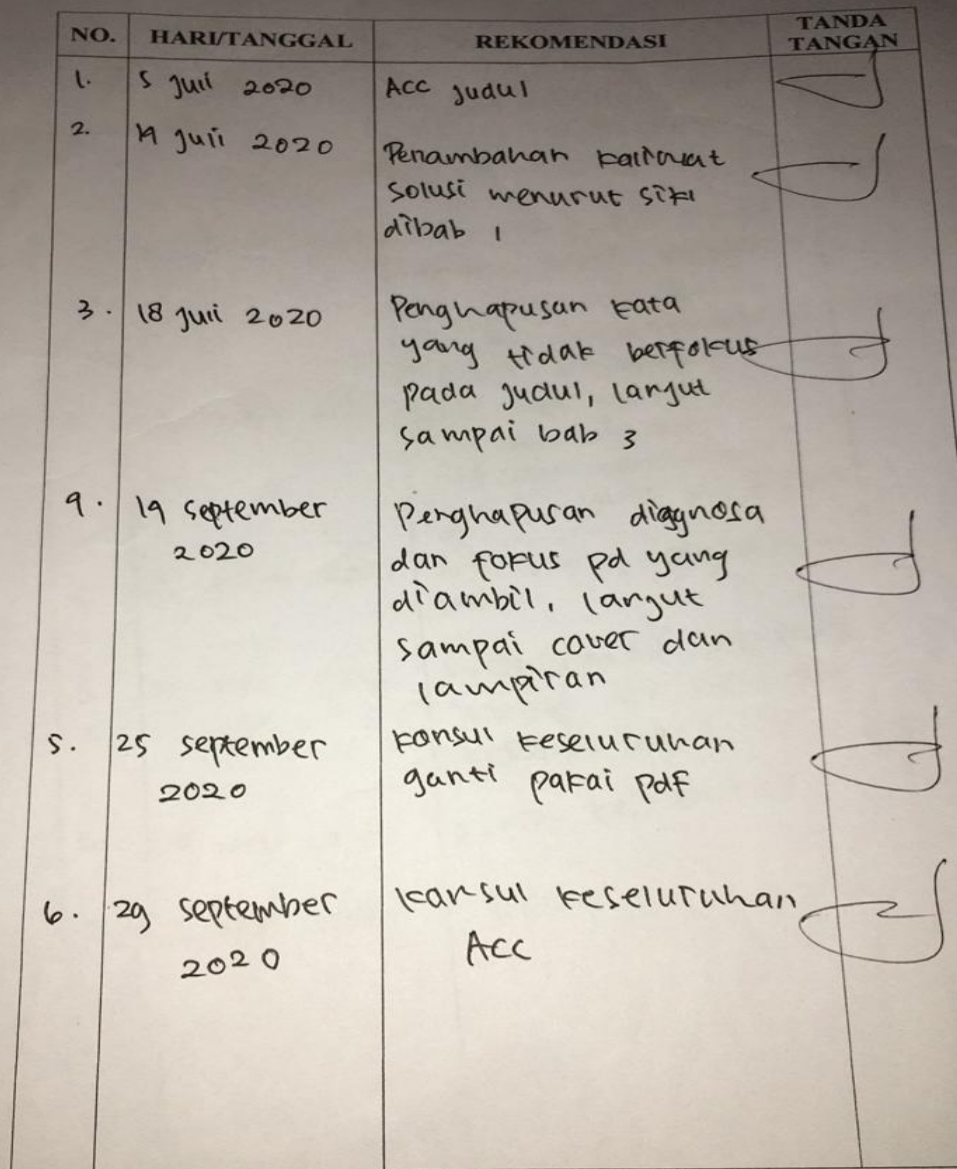 NO. HARI/TANGGAL REKOMENDASI TANDA TANGAN
1. 5 Juli 2020 Acc Judul
2. 14 Juli 2020 Penambahan kalimat
solusi menurut siki
dibab 1
3. 18 Juli 2020 Penghapusan kata
yang tidak berfokus
pada judul, lanjut
sampai bab 3
4. 19 September Penghapusan diagnosa
2020 dan fokus pd yang
diambil, lanjut
sampai cover dan
lampiran
5. 25 september konsul keseluruhan
2020 ganti pakai pdf
6. 29 september konsul keseluruhan
2020 Acc